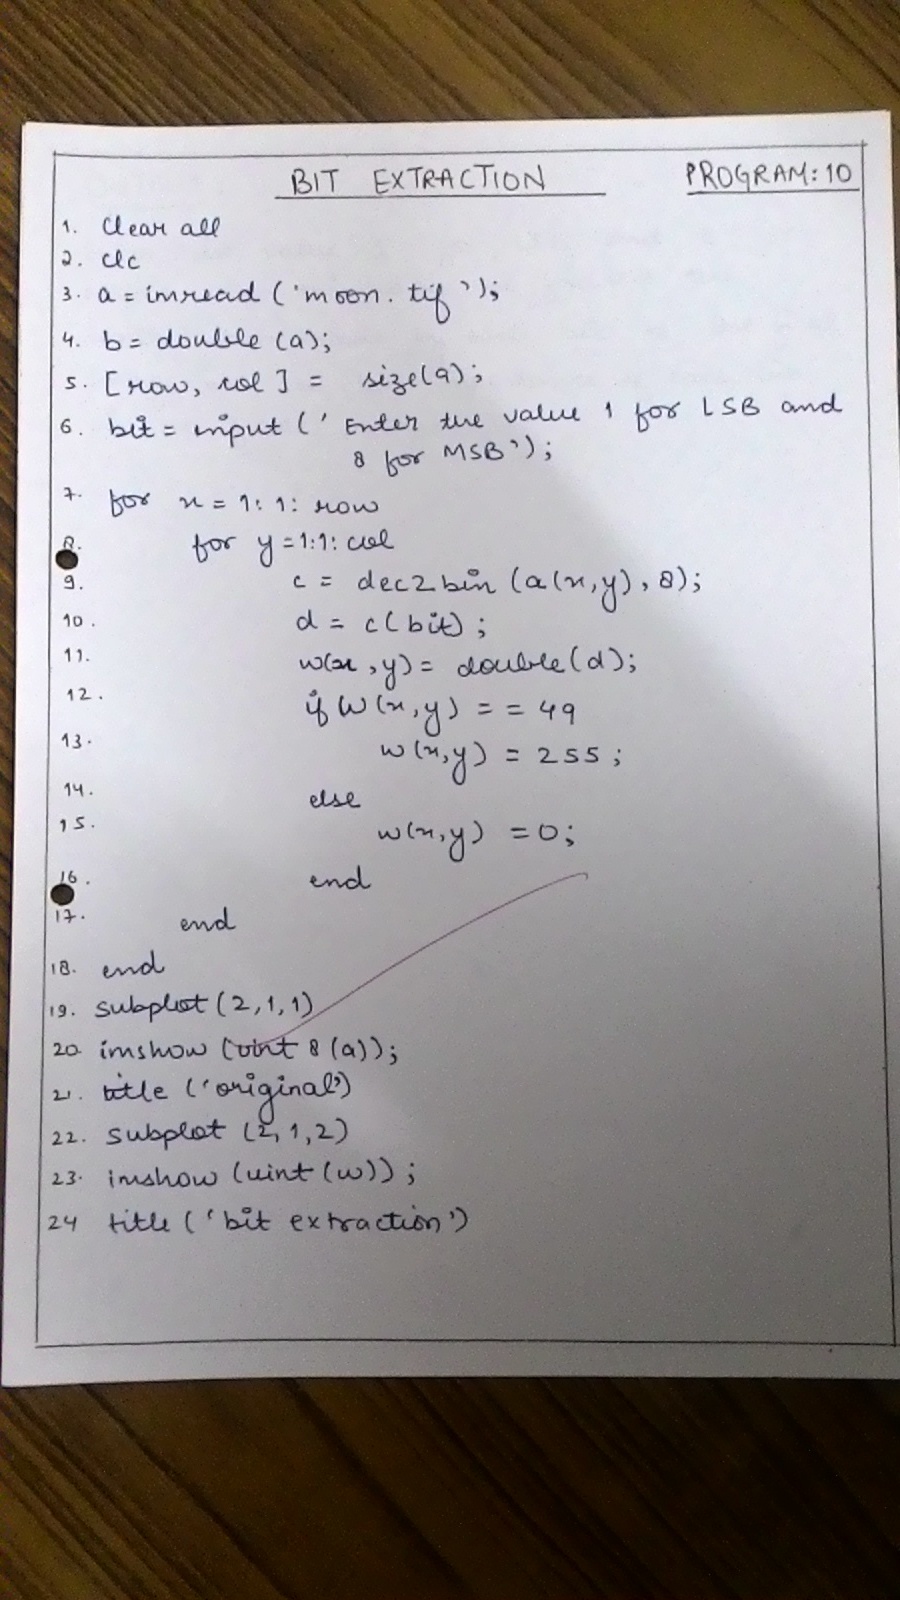 BIT EXTRACTION PROGRAM: 10
1. Clear all
2. clc
3. a = imread ('moon. tif');
4. b = double (a);
5. [row, col] = size(a);
6. bit = input (' Enter the value 1 for LSB and
8 for MSB');
7. for x = 1:1: row
8. for y = 1:1: col
9. c = dec2bin (a(x,y), 8);
10. d = c(bit);
11. w(x,y) = double(d);
12. if W(x,y) = = 49
13. w(x,y) = 255;
14. else
15. w(x,y) = 0;
16. end
17. end
18. end
19. subplot (2,1,1)
20. imshow (uint 8 (a));
21. title ('original')
22. subplot (2,1,2)
23. imshow (uint (w));
24 title ('bit extraction')